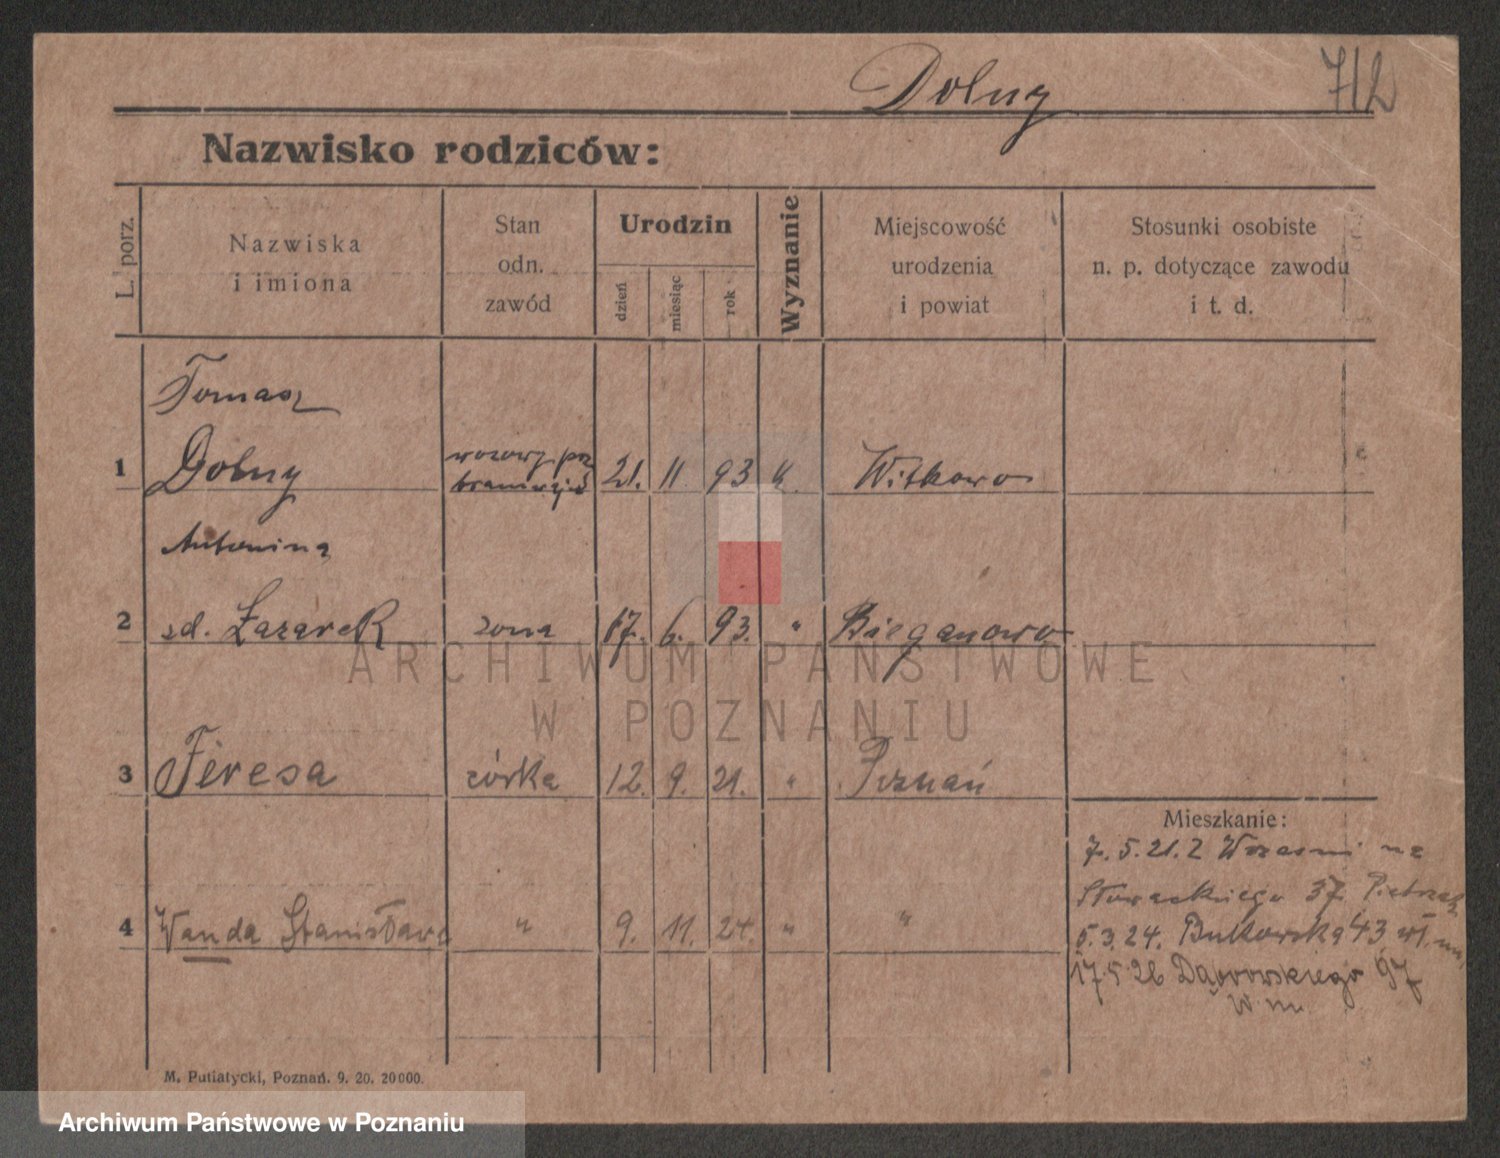 Dolny
712
Nazwisko rodziców:
L. porz.
Nazwiska
i imiona
Stan
odn.
zawód
Urodzin
dzień
miesiąc
rok
Wyznanie
Miejscowość
urodzenia
i powiat
Stosunki osobiste
n. p. dotyczące zawodu
i t. d.
Tomasz
1 Dolny wozowy 21. 11 93 k. Witkowo
Antonina
2 zd. Łazarek żona 17. 6. 93. " Bieganowo
3 Teresa córka 12. 9. 21. " Poznań
Mieszkanie:
7.5.21. z Wrześni
Słowackiego 37
4 Wanda Stanisława " 9. 11. 24. " "
5.3.24. Bukowska 43
17.5.26 Dąbrowskiego 97
M. Putiatycki, Poznań. 9. 20. 20000.
ARCHIWUM PAŃSTWOWE
W POZNANIU
Archiwum Państwowe w Poznaniu